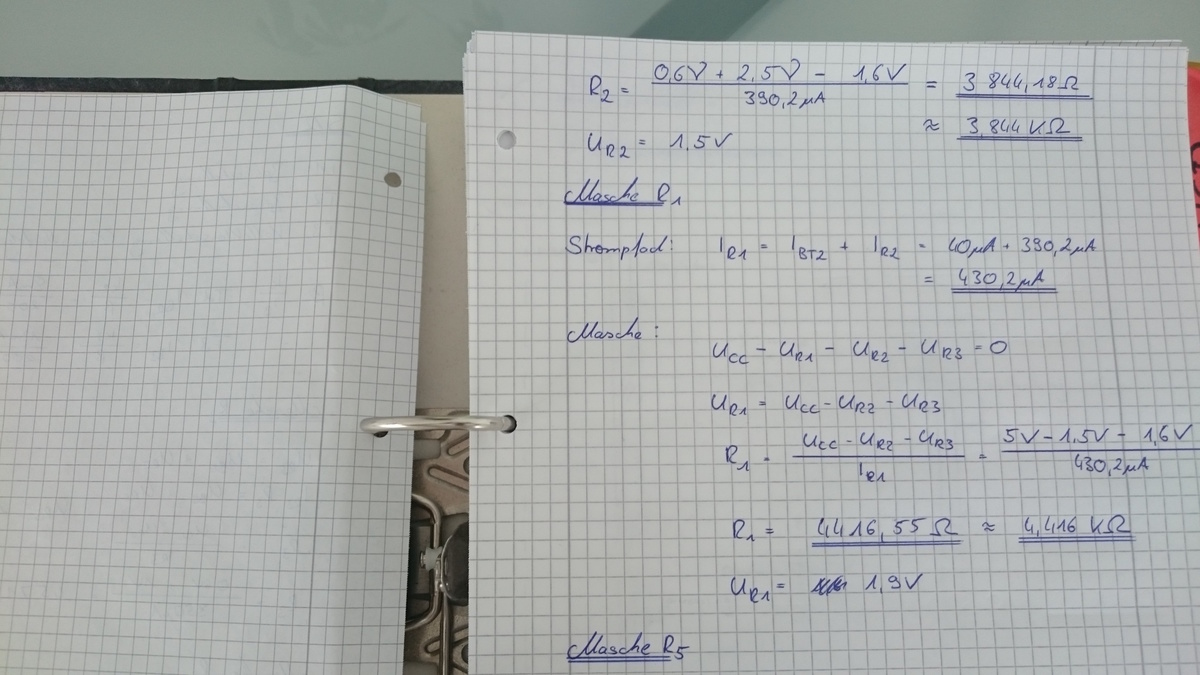 R2 = (0,6V + 2,5V - 1,6V) / 390,2µA = 3 844,18Ω
≈ 3,844 KΩ
UR2 = 1,5V
Masche R1
Strompfad: IR1 = IBT2 + IR2 = 40µA + 390,2µA
= 430,2µA
Masche:
UCC - UR1 - UR2 - UR3 = 0
UR1 = UCC - UR2 - UR3
R1 = (UCC - UR2 - UR3) / IR1 = (5V - 1,5V - 1,6V) / 430,2µA
R1 = 4416,55 Ω ≈ 4,416 KΩ
UR1 = 1,9V
Masche R5